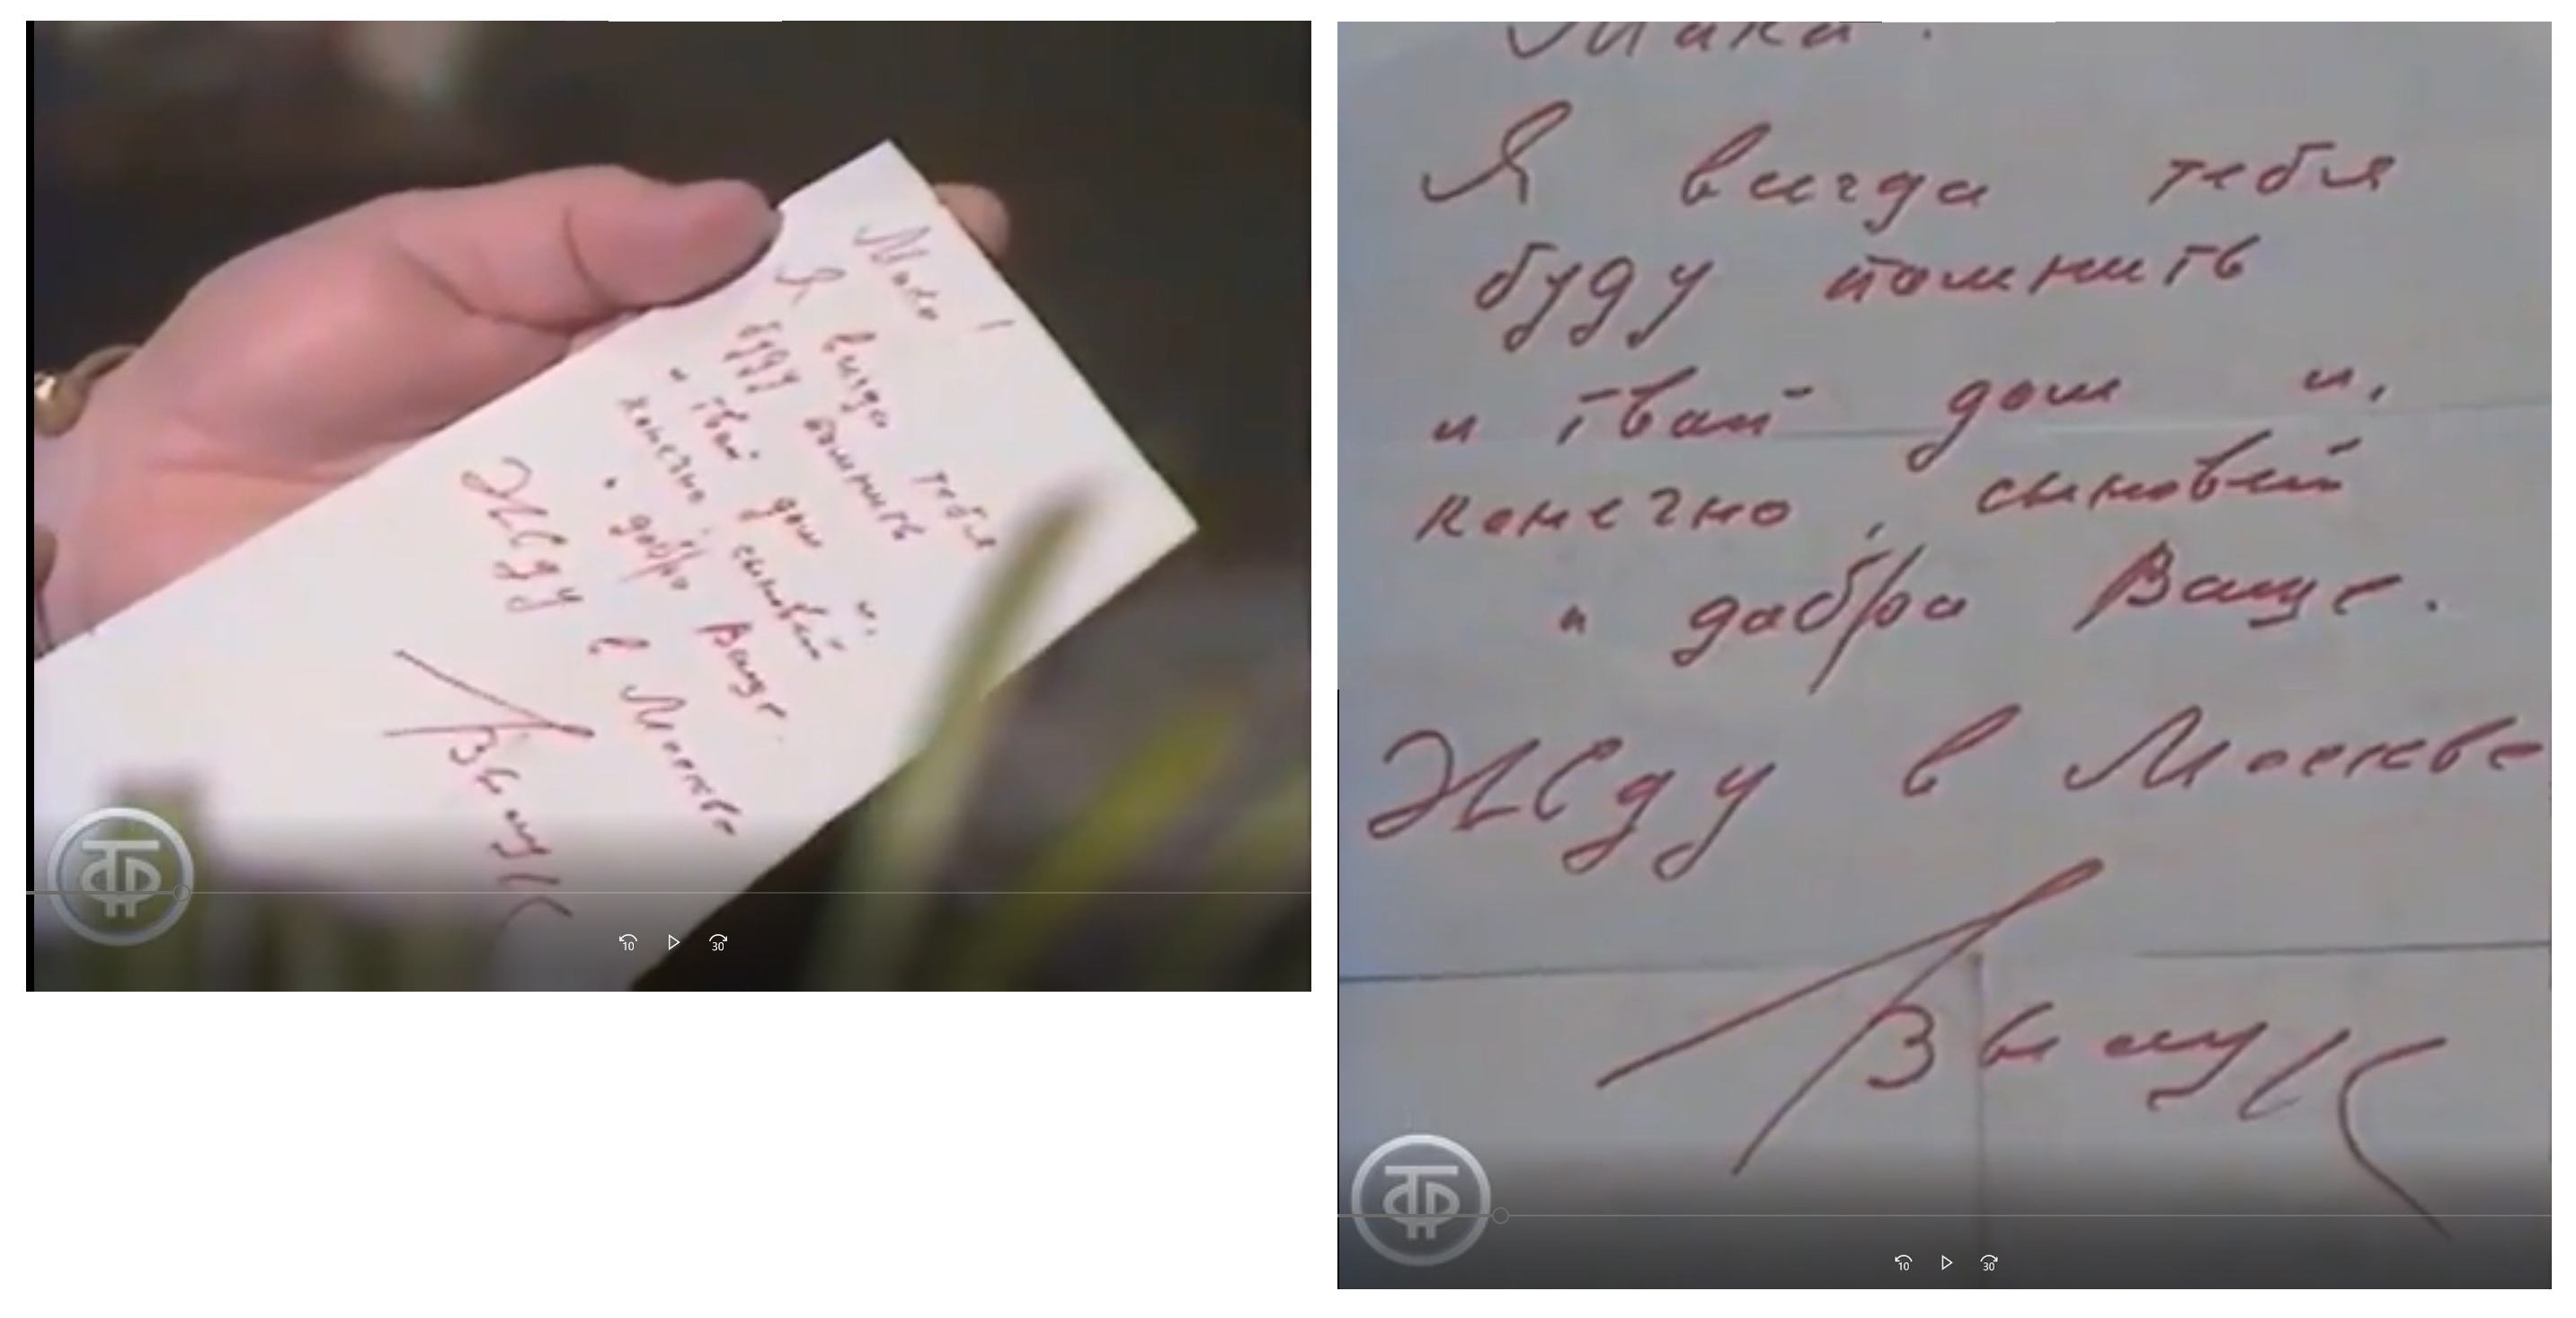 Мака!
Я всегда тебя
буду помнить
и твой дом и,
конечно, сыновей
и добро Ваше.
Жду в Москве
10 30
Мака!
Я всегда тебя
буду помнить
и твой дом и,
конечно, сыновей
и добро Ваше.
Жду в Москве
10 30